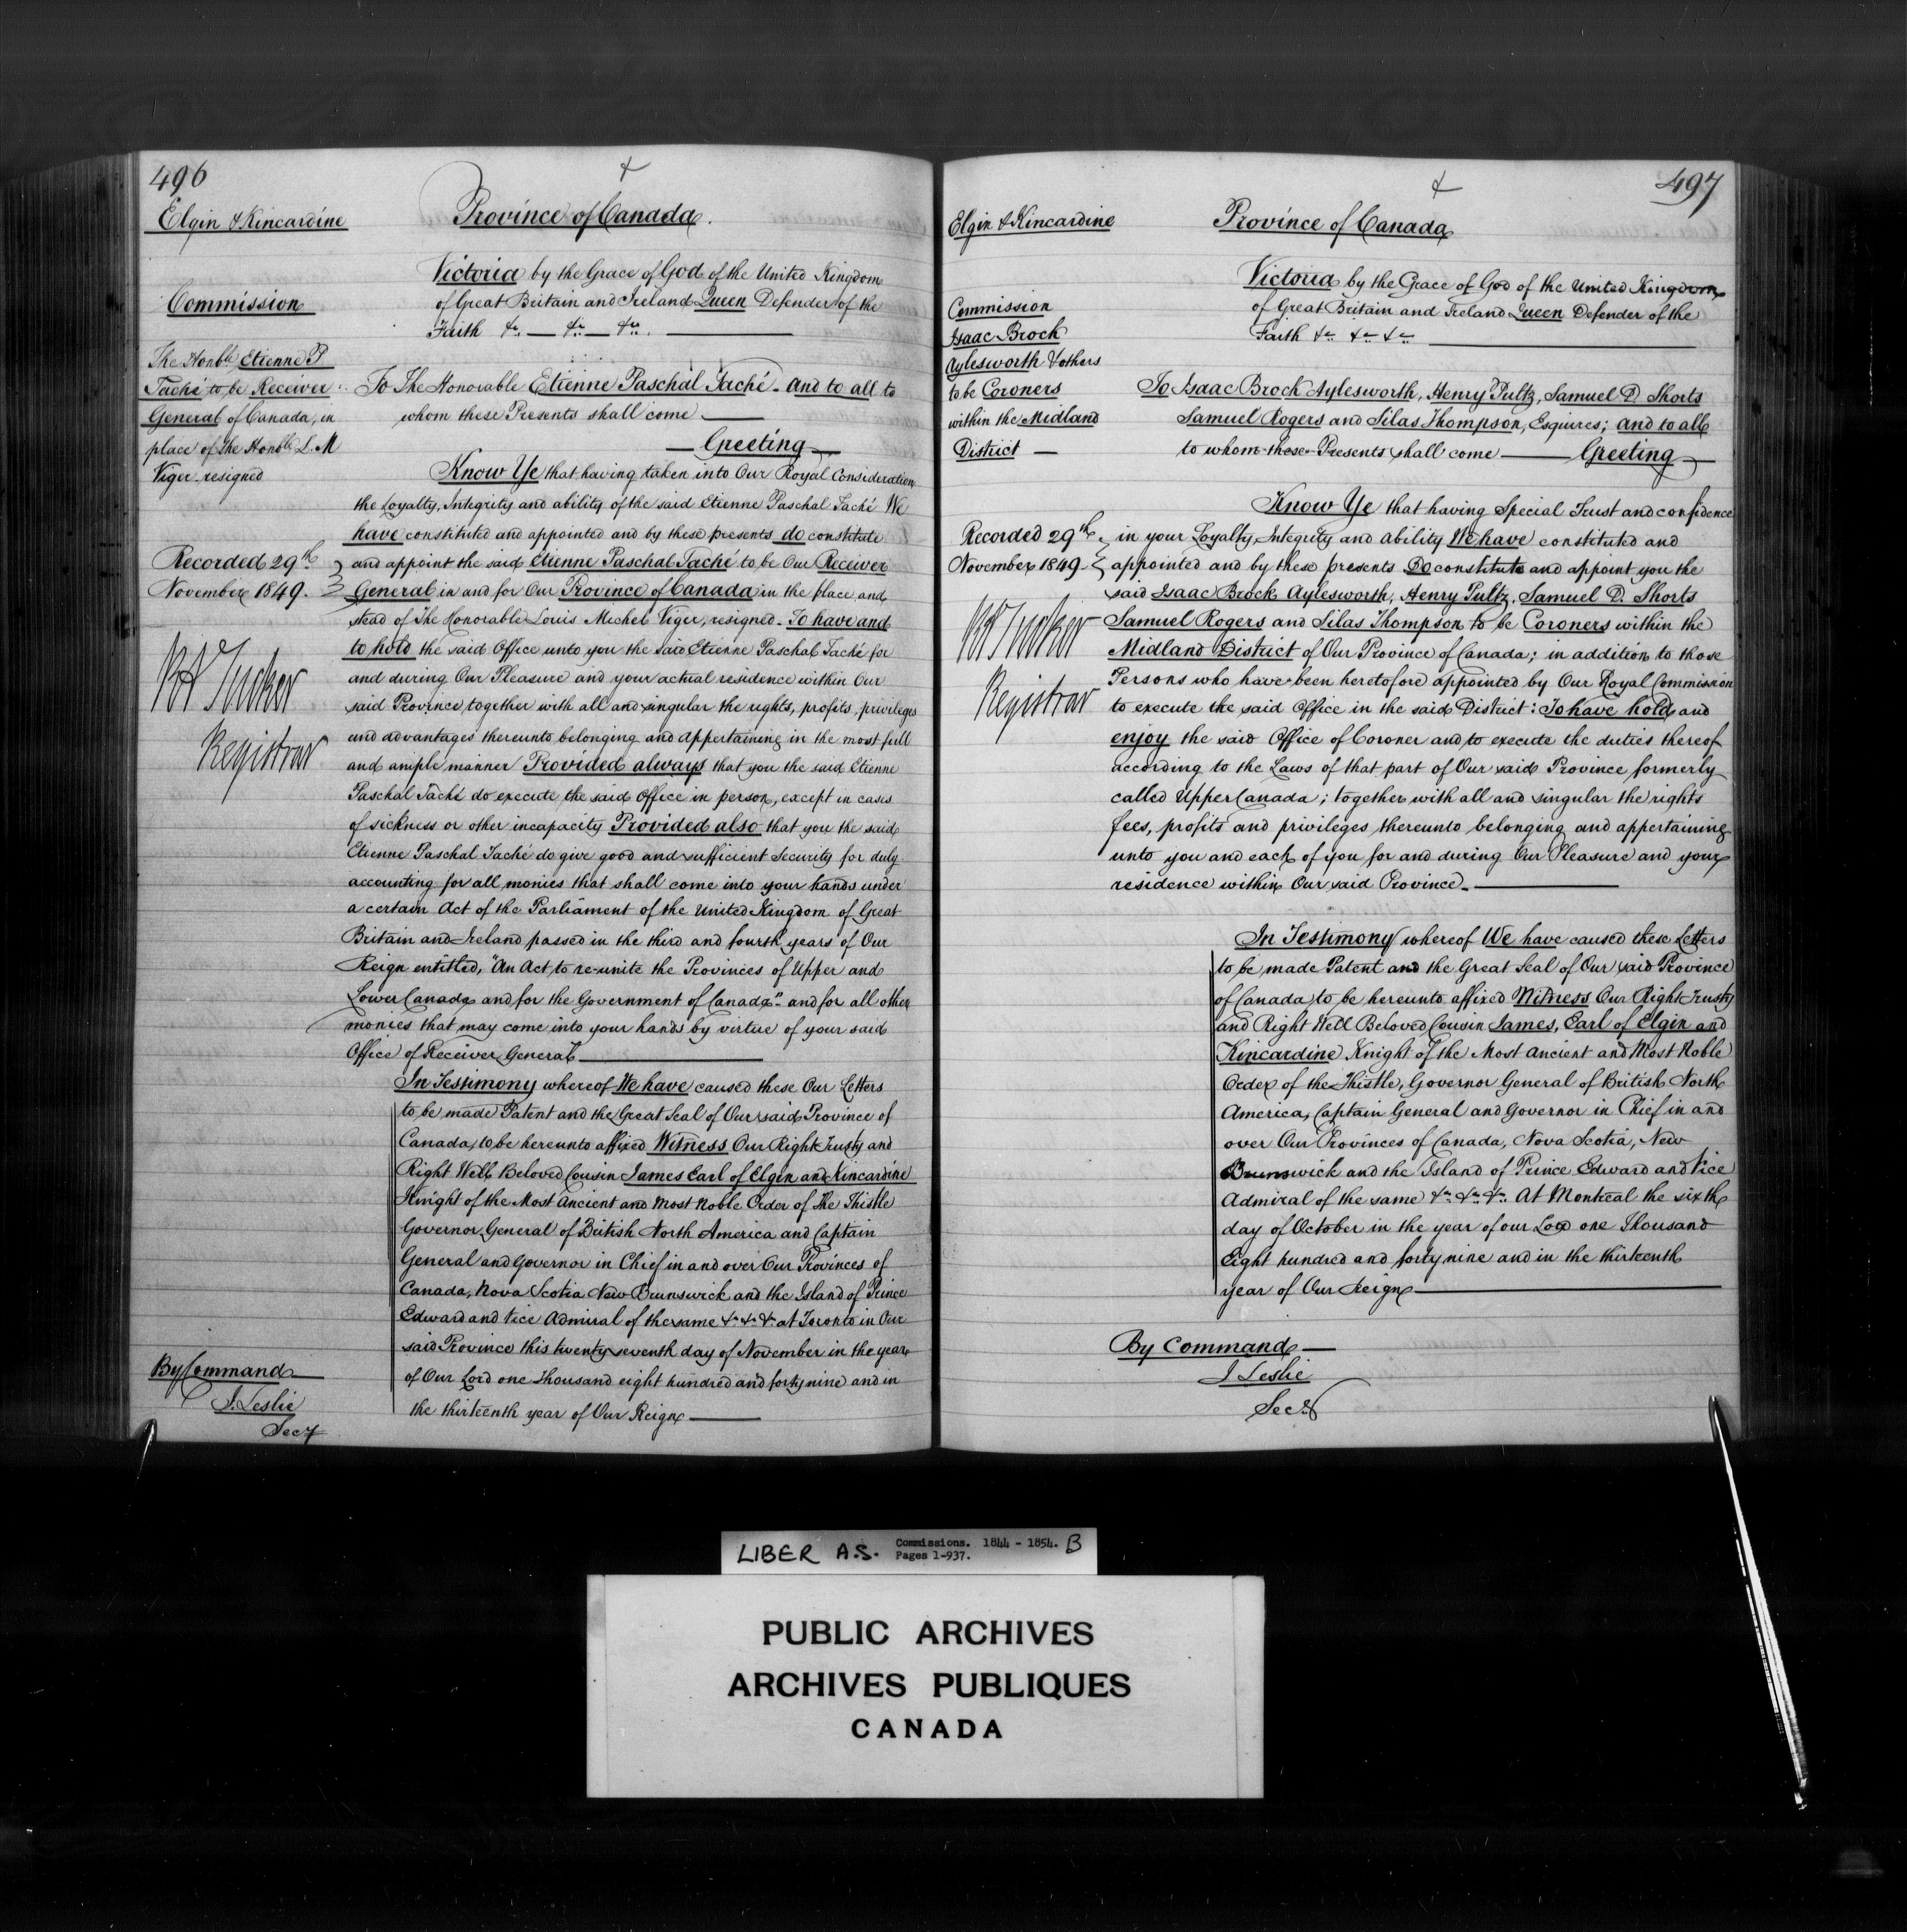 496
Elgin & Kincardine
Province of Canada.
Commission
The Honble Etienne P
Taché to be Receiver
General of Canada, in
place of the Honble L. M
Viger resigned
Recorded 29th
November 1849.
R A Tucker
Registrar
Victoria by the Grace of God of the United Kingdom
of Great Britain and Ireland Queen Defender of the
Faith &c. — &c. — &c.
To The Honorable Etienne Paschal Taché - and to all to
whom these Presents shall come —
— Greeting —
Know Ye that having taken into Our Royal Consideration
the Loyalty, Integrity and ability of the said Etienne Paschal Taché We
have constituted and appointed and by these presents do constitute
and appoint the said Etienne Paschal Taché to be Our Receiver
General in and for Our Province of Canada in the place and
stead of The Honorable Louis Michel Viger, resigned - To have and
to hold the said Office unto you the said Etienne Paschal Taché for
and during Our Pleasure and your actual residence within Our
said Province together with all and singular the rights, profits, privileges
and advantages thereunto belonging and appertaining in the most full
and ample manner Provided always that you the said Etienne
Paschal Taché do execute the said Office in person, except in cases
of sickness or other incapacity Provided also that you the said
Etienne Paschal Taché do give good and sufficient Security for duly
accounting for all monies that shall come into your hands under
a certain Act of the Parliament of the United Kingdom of Great
Britain and Ireland passed in the third and fourth years of Our
Reign entitled, "An Act to re-unite the Provinces of Upper and
Lower Canada and for the Government of Canada" and for all other
monies that may come into your hands by virtue of your said
Office of Receiver General —
In Testimony whereof We have caused these Our Letters
to be made Patent and the Great Seal of Our said Province of
Canada, to be hereunto affixed Witness Our Right Trusty and
Right Well Beloved Cousin James Earl of Elgin and Kincardine
Knight of the Most Ancient and Most Noble Order of the Thistle
Governor General of British North America and Captain
General and Governor in Chief in and over Our Provinces of
Canada, Nova Scotia New Brunswick and the Island of Prince
Edward and Vice Admiral of the same &c. &c. &c. at Toronto in Our
said Province this twenty seventh day of November in the year
of Our Lord one thousand eight hundred and forty nine and in
the thirteenth year of Our Reign —
By Command
J. Leslie
Secy
497
Elgin & Kincardine
Province of Canada
Commission
Isaac Brock
Aylesworth & others
to be Coroners
within the Midland
District —
Recorded 29th
November 1849.
R A Tucker
Registrar
Victoria by the Grace of God of the United Kingdom
of Great Britain and Ireland Queen Defender of the
Faith &c &c &c —
To Isaac Brock Aylesworth, Henry Pultz, Samuel D. Shorts
Samuel Rogers and Silas Thompson, Esquires; and to all
to whom these Presents shall come — Greeting —
Know Ye that having Special Trust and confidence
in your Loyalty, Integrity and ability We have constituted and
appointed and by these presents Do constitute and appoint you the
said Isaac Brock Aylesworth, Henry Pultz, Samuel D. Shorts
Samuel Rogers and Silas Thompson to be Coroners within the
Midland District of Our Province of Canada; in addition to those
Persons who have been heretofore appointed by Our Royal Commission
to execute the said Office in the said District: To have hold and
enjoy the said Office of Coroner and to execute the duties thereof
according to the Laws of that part of Our said Province formerly
called Upper Canada; together with all and singular the rights
fees, profits and privileges thereunto belonging and appertaining
unto you and each of you for and during Our Pleasure and your
residence within Our said Province. —
In Testimony whereof We have caused these Letters
to be made Patent and the Great Seal of Our said Province
of Canada to be hereunto affixed Witness Our Right Trusty
and Right Well Beloved Cousin James, Earl of Elgin and
Kincardine Knight of the Most Ancient and Most Noble
Order of the Thistle, Governor General of British North
America, Captain General and Governor in Chief in and
over Our Provinces of Canada, Nova Scotia, New
Brunswick and the Island of Prince Edward and Vice
Admiral of the same &c. &c. &c. At Montreal the sixth
day of October in the year of our Lord one thousand
Eight hundred and forty nine and in the thirteenth
year of Our Reign —
By Command —
J Leslie
Secy
LIBER A.S. Commissions. 1844 - 1854. B
Pages 1-937.
PUBLIC ARCHIVES
ARCHIVES PUBLIQUES
CANADA